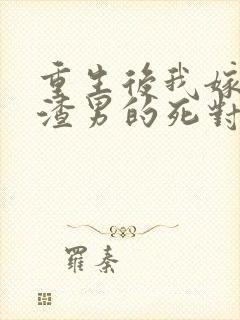 重生後我嫁
渣男的死對
羅秦